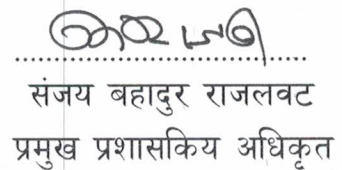 संजय बहादुर राजलवट
प्रमुख प्रशासकिय अधिकृत